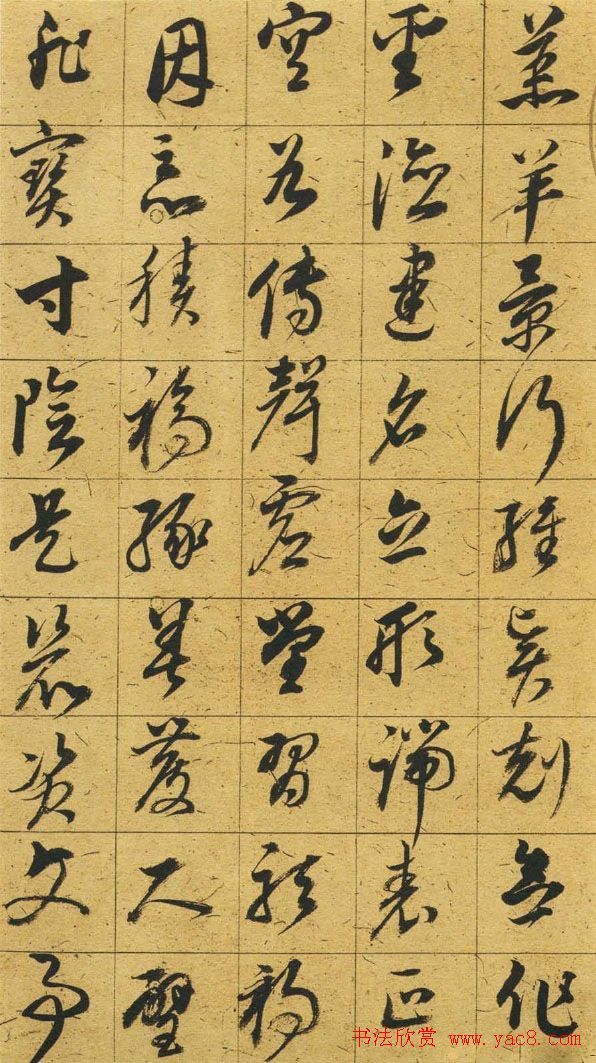 羔羊景行維賢剋念作
聖德建名立形端表正
空谷傳聲虛堂習聽禍
因惡積福緣善慶尺璧
非寶寸陰是競資父事
书法欣赏 www.yac8.com